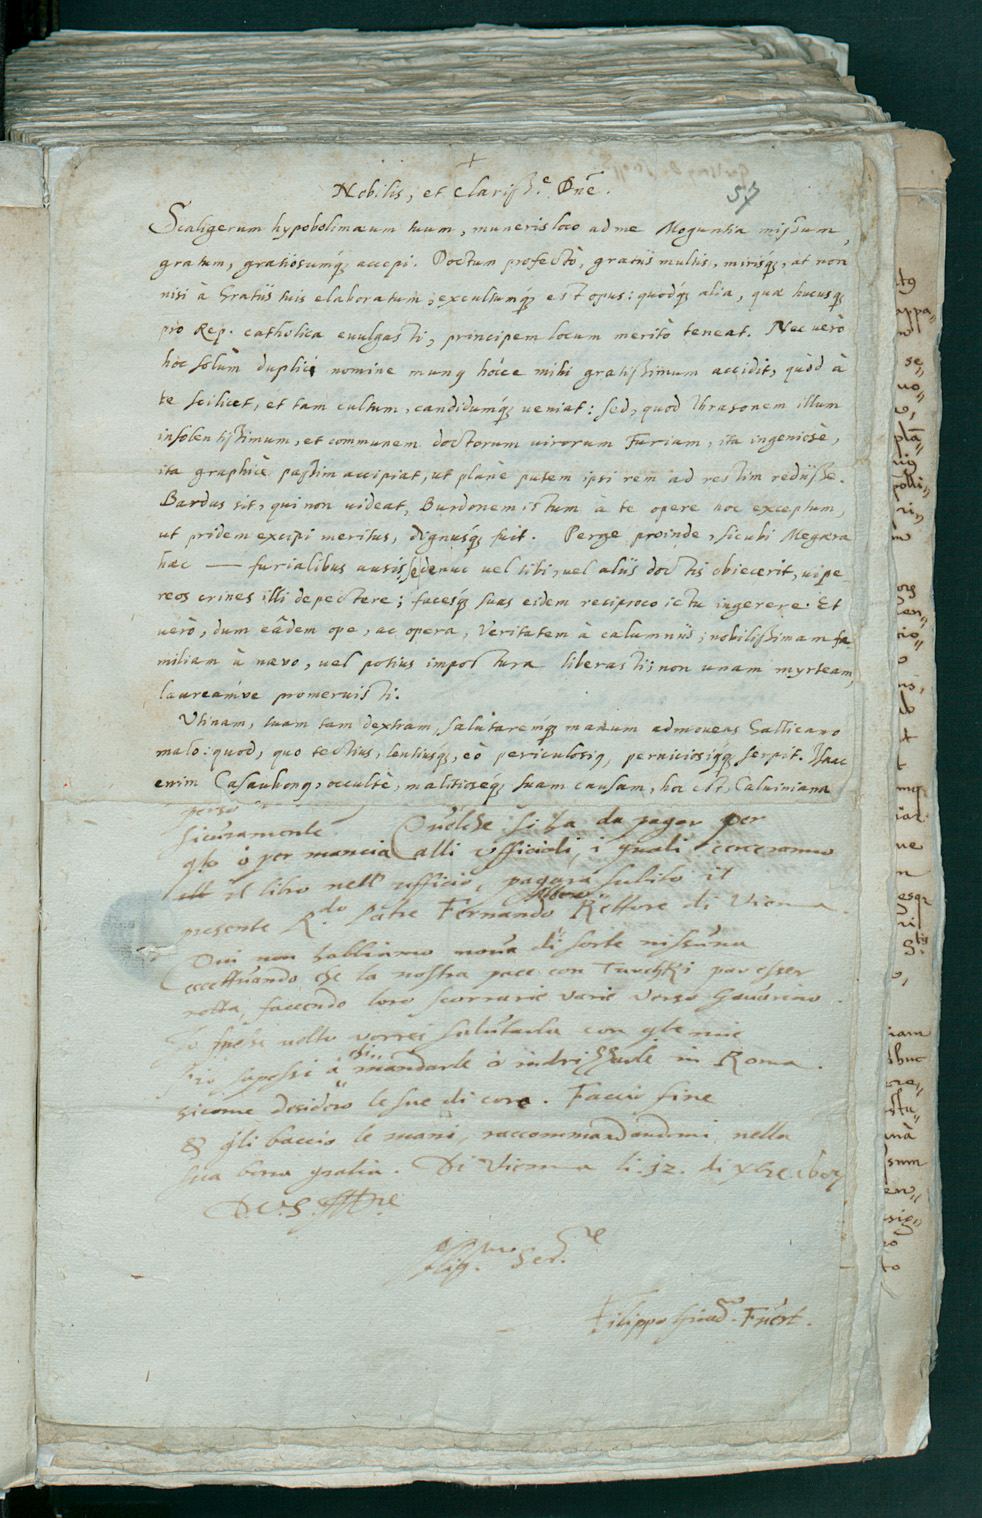 +
Nobilis, et Clariss.e Dne.
57
Scaligerum hypobolimæum tuum, muneris loco ad me Moguntia missum,
gratum, gratiosumq́; accepi. Doctum profectò, gratiis multis, mirisq́;, at non
nisi à Gratiis tuis elaboratum; excultumq́; est opus: quodq́; alia, quæ hucusq́;
pro Rep. catholica evulgasti, principem locum meritò teneat. Nec uerò
hoc solùm duplici nomine munus hócce mihi gratissimum accidit, quòd à
te scilicet, et tam cultum, candidumq́; ueniat: sed, quod Thrasonem illum
insolentissimum, et communem doctorum uirorum Furiam, ita ingeniosè,
ita graphicè passim accipiat, ut planè putem ipsi rem ad restim redijsse.
Bardus sit, qui non uideat, Burdonem istum à te opere hoc exceptum,
ut pridem excipi meritus, dignusq́; fuit. Perge proinde, sicubi Megæra
hæc — furialibus ausis sedenuc uel tibi, uel aliis doctis obiecerit, uipe
reos crines illi depectere; facesq́; suas eidem reciproco ictu ingerere. Et
uerò, dum eâdem ope, ac opera, Veritatem à calumniis; nobilissimam fa-
miliam à næuo, uel potius impostura liberasti; non unam myrteam,
laureamue promeruisti.
Vtinam, tuam tam dextram, salutaremq́; manum admoueas Gallicano
malo: quod, quo tectius, lentiusq́;, eò periculosius, perniciosiusq́; serpit. Isaac
enim Casaubonus, occultè, malitioseq́; suam causam, hoc est, Caluiniana
sicuramente. Quelche si ha da pagar per
qto ò per mancia alli officioli, i quali cerceranno
il libro nell' ufficio, pagarà subito il
presente R.do Padre Fernando Rettore di Vienna.
Qui non habbiamo noua di sorte nissuna
eccettuando che la nostra pace con Turchi par esser
rotta, facendo loro scorrarie varie verso Gauarino.
Io spesse volte vorrei salutarla con qte mie
s'io sapessi à chi mandarle ò indrizzarle in Roma.
sicome desidero le sue di core. Faccio fine
& gli baccio le mani, raccommandandomi nella
sua bona gratia. Di Vienna li. 12. di xbre.
D.V.S. Ill.re
Ser.re
Filippo